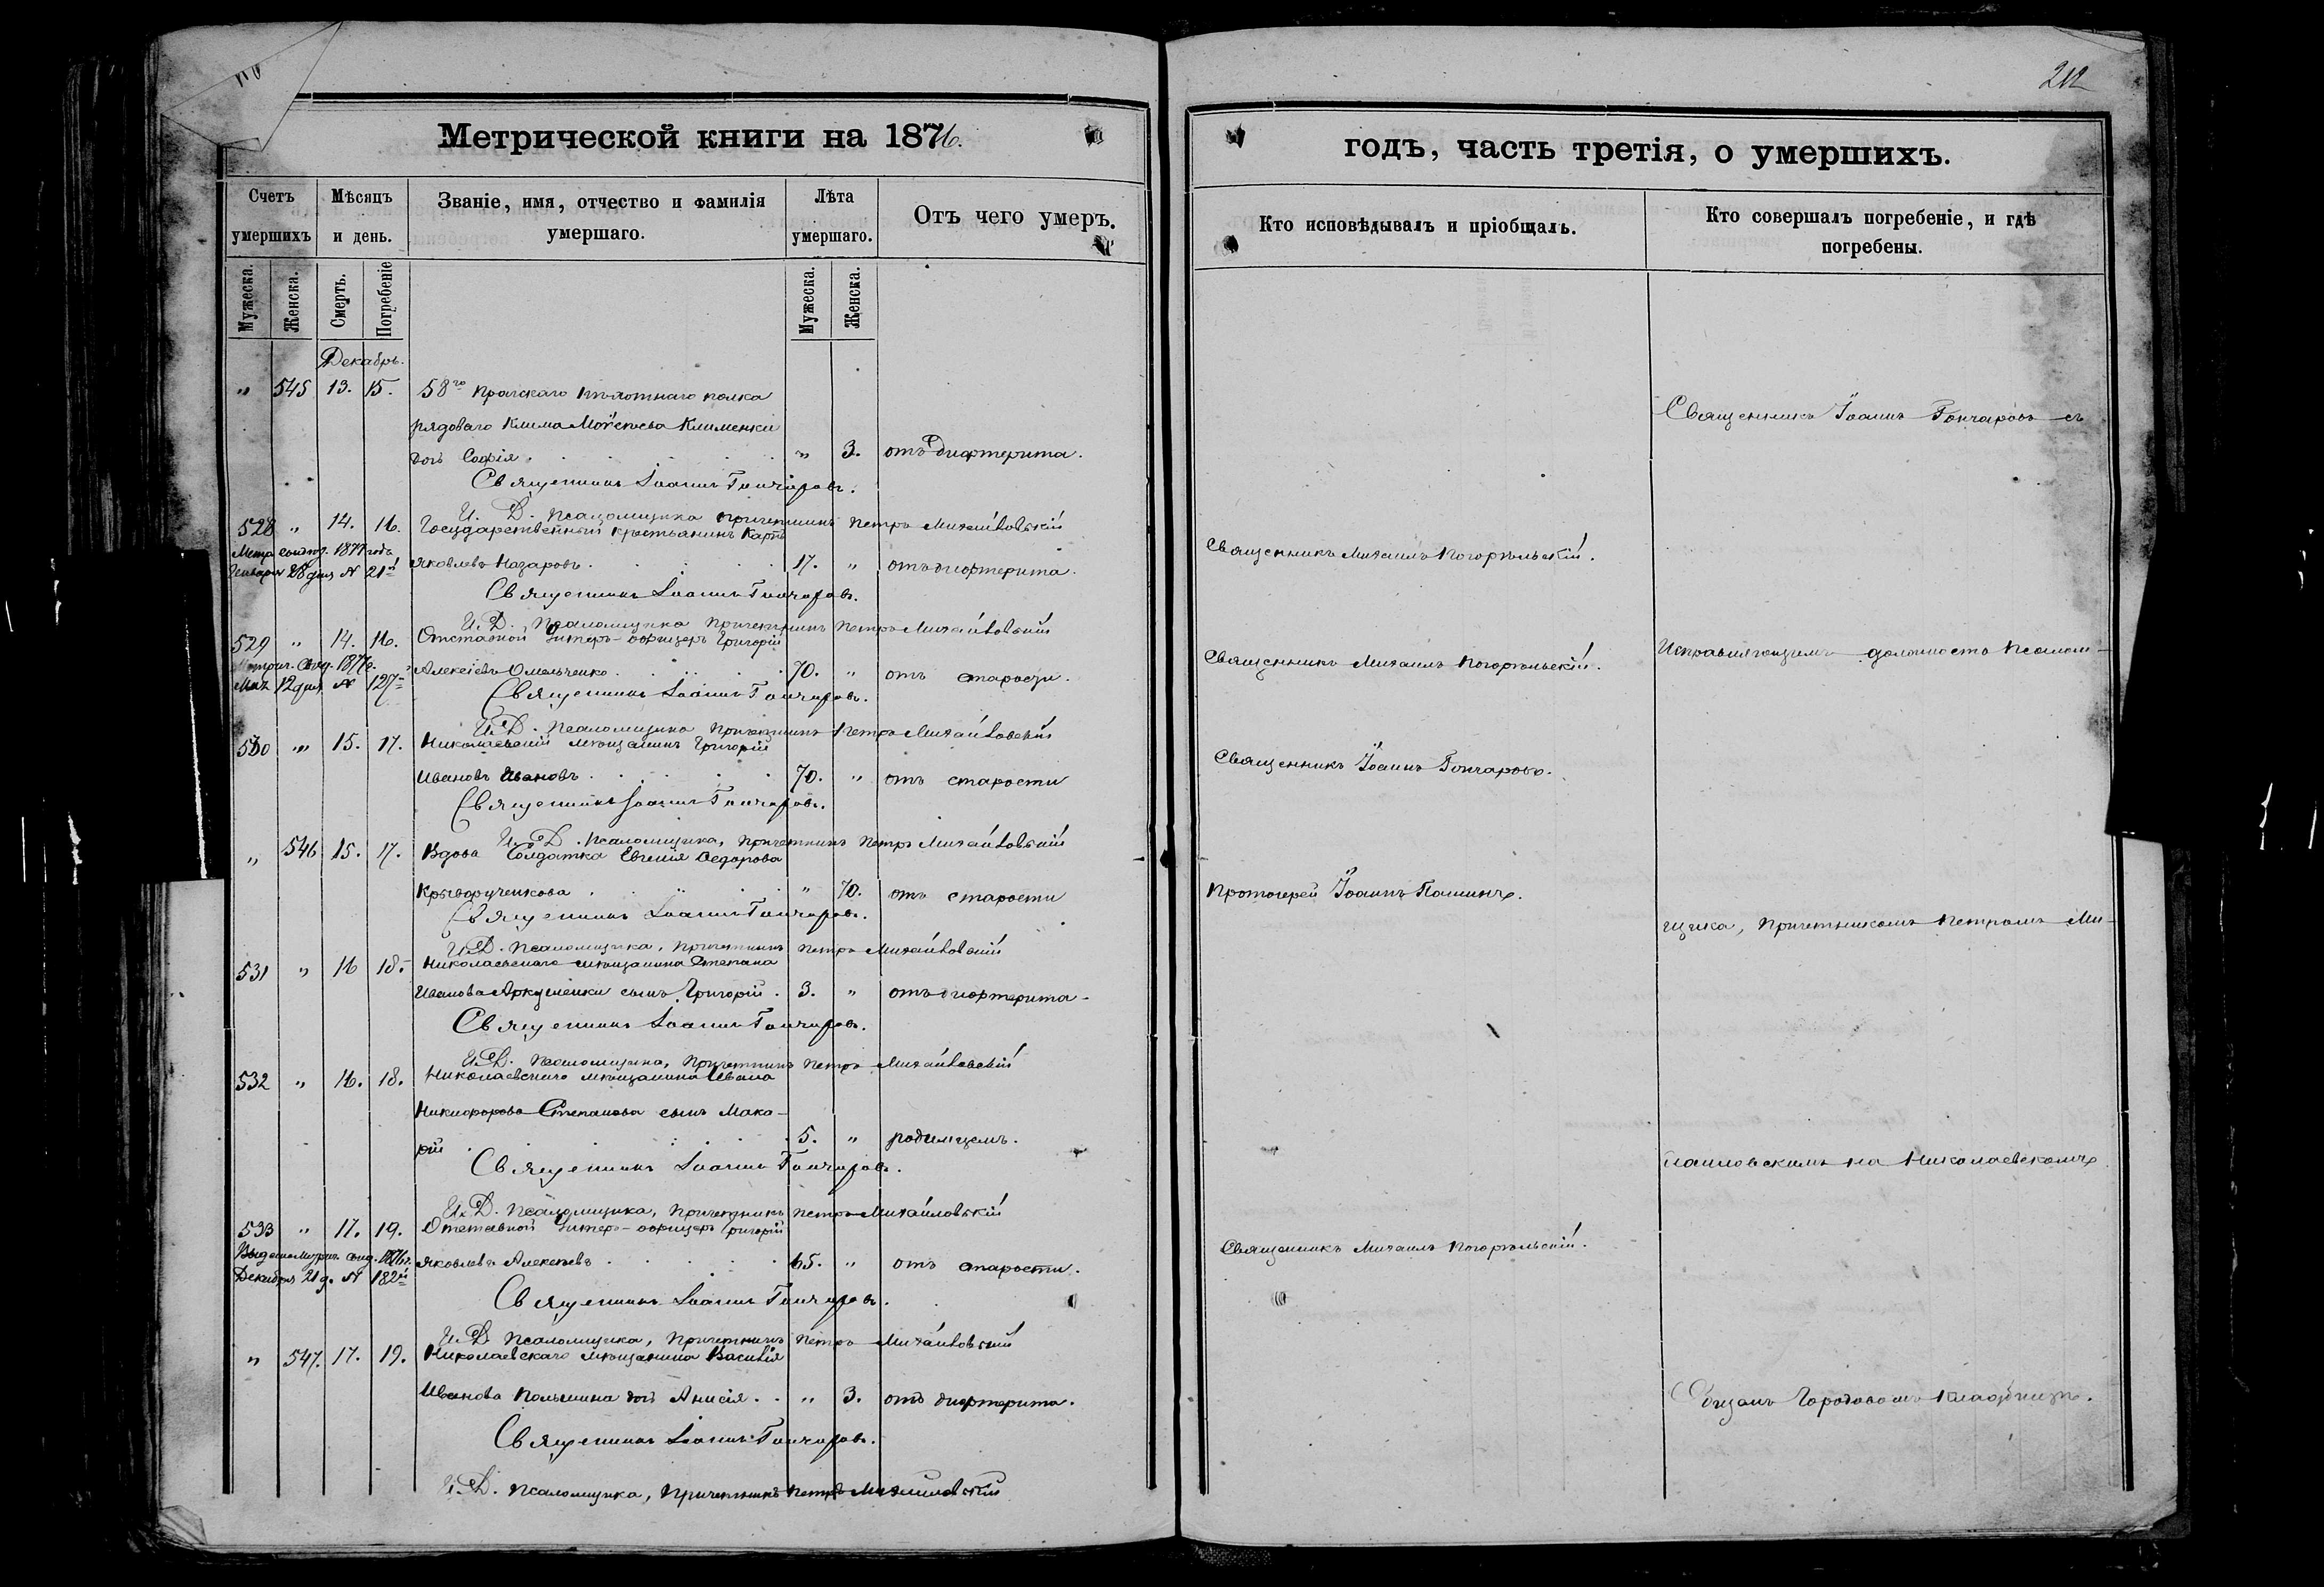 212
Метрической книги на 1876.
годъ, часть третія, о умершихъ.
Счетъ умершихъ
Мѣсяцъ и день.
Званіе, имя, отчество и фамилія умершаго.
Лѣта умершаго.
Отъ чего умеръ.
Кто исповѣдывалъ и пріобщалъ.
Кто совершалъ погребеніе, и гдѣ погребены.
Мужеска.
Женска.
Смерть.
Погребеніе
Мужеска.
Женска.
Декабрь.
" 545 13. 15. 58го Прагскаго пѣхотнаго полка
рядоваго Клима Моѵсеева Клименки
дочь Софія " 3. отъ дифтерита.
Священникъ Іоаннъ Гончаровъ.
И. Д. Псаломщика Причетникъ Петръ Михайловскій
528 " 14. 16. Государственный крестьянинъ Карпъ
1877 года
Января 28 дня № 21й Яковлевъ Назаровъ 17. " отъ дифтерита.
Священникъ Іоаннъ Гончаровъ.
И. Д. Псаломщика Причетникъ Петръ Михайловскій
529 " 14. 16. Отставной Унтеръ-офицеръ Григорій
Метрич. свид. 1877 г.
12 дня № 127 Алексіевъ Омельченко 70. " отъ старости.
Священникъ Іоаннъ Гончаровъ.
И. Д. Псаломщика Причетникъ Петръ Михайловскій
530 " 15. 17. Николаевскій мѣщанинъ Григорій
Ивановъ Ивановъ 70. " отъ старости
Священникъ Іоаннъ Гончаровъ.
И. Д. Псаломщика, Причетникъ Петръ Михайловскій
" 546 15. 17. Вдова Солдатка Евгенія Ѳедорова
Криворученкова " 70. отъ старости
Священникъ Іоаннъ Гончаровъ.
И. Д. Псаломщика, Причетникъ Петръ Михайловскій
531 " 16 18. Николаевскаго мѣщанина Степана
Иванова сынъ Григорій 3. " отъ дифтерита
Священникъ Іоаннъ Гончаровъ.
И. Д. Псаломщика, Причетникъ Петръ Михайловскій
532 " 16. 18. Николаевскаго мѣщанина Ивана
Никифорова Степанова сынъ Мака-
рій 5. " родимцемъ.
Священникъ Іоаннъ Гончаровъ.
И. Д. Псаломщика, Причетникъ Петръ Михайловскій
533 " 17. 19. Отставной Унтеръ-офицеръ Григорій
Выдано Метрич. свид. 1876 г.
Декабря 21 д. № 182й Яковлевъ Алексѣевъ 65. " отъ старости.
Священникъ Іоаннъ Гончаровъ.
И. Д. Псаломщика, Причетникъ Петръ Михайловскій
" 547. 17. 19. Николаевскаго мѣщанина Василія
Иванова дочь Анисія " 3. отъ дифтерита.
Священникъ Іоаннъ Гончаровъ.
И. Д. Псаломщика, Причетникъ Петръ Михайловскій
Священникъ Михаилъ Погорѣльскій.
Священникъ Михаилъ Погорѣльскій.
Священникъ Іоаннъ Гончаровъ.
Протоіерей Іоаннъ
Священникъ Михаилъ Погорѣльскій.
Священникъ Іоаннъ Гончаровъ съ
Исправляющимъ должность Псалом-
щика, Причетникомъ Петромъ Ми-
хайловскимъ на Николаевскомъ
Общемъ Городовомъ кладбищѣ.